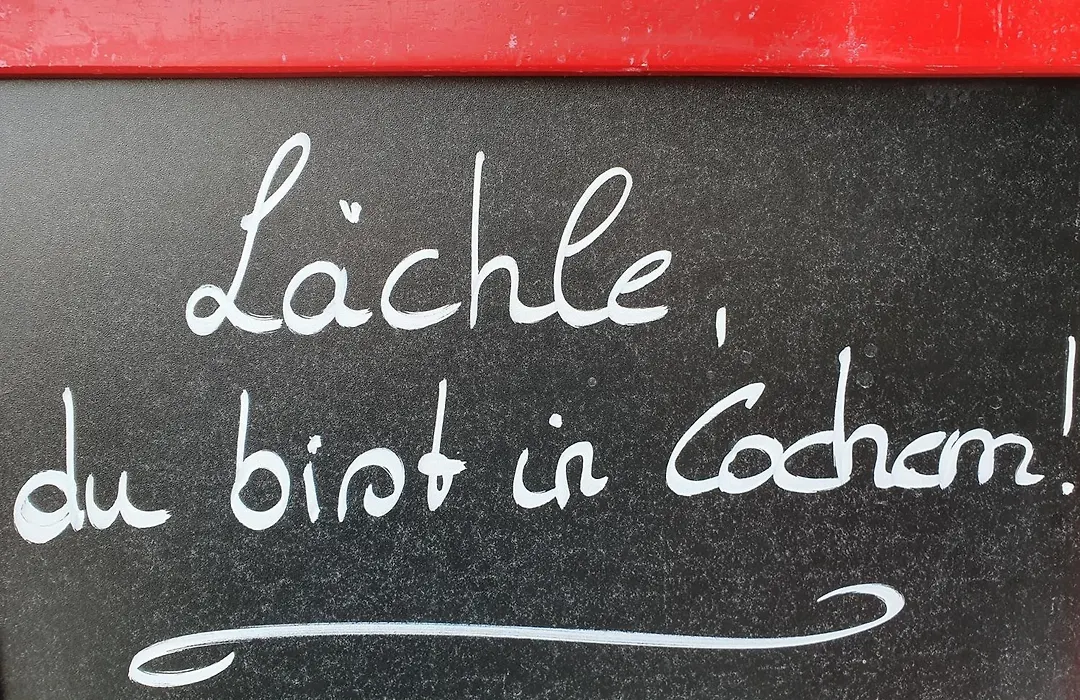 Lächle,
du bist in Cochem!